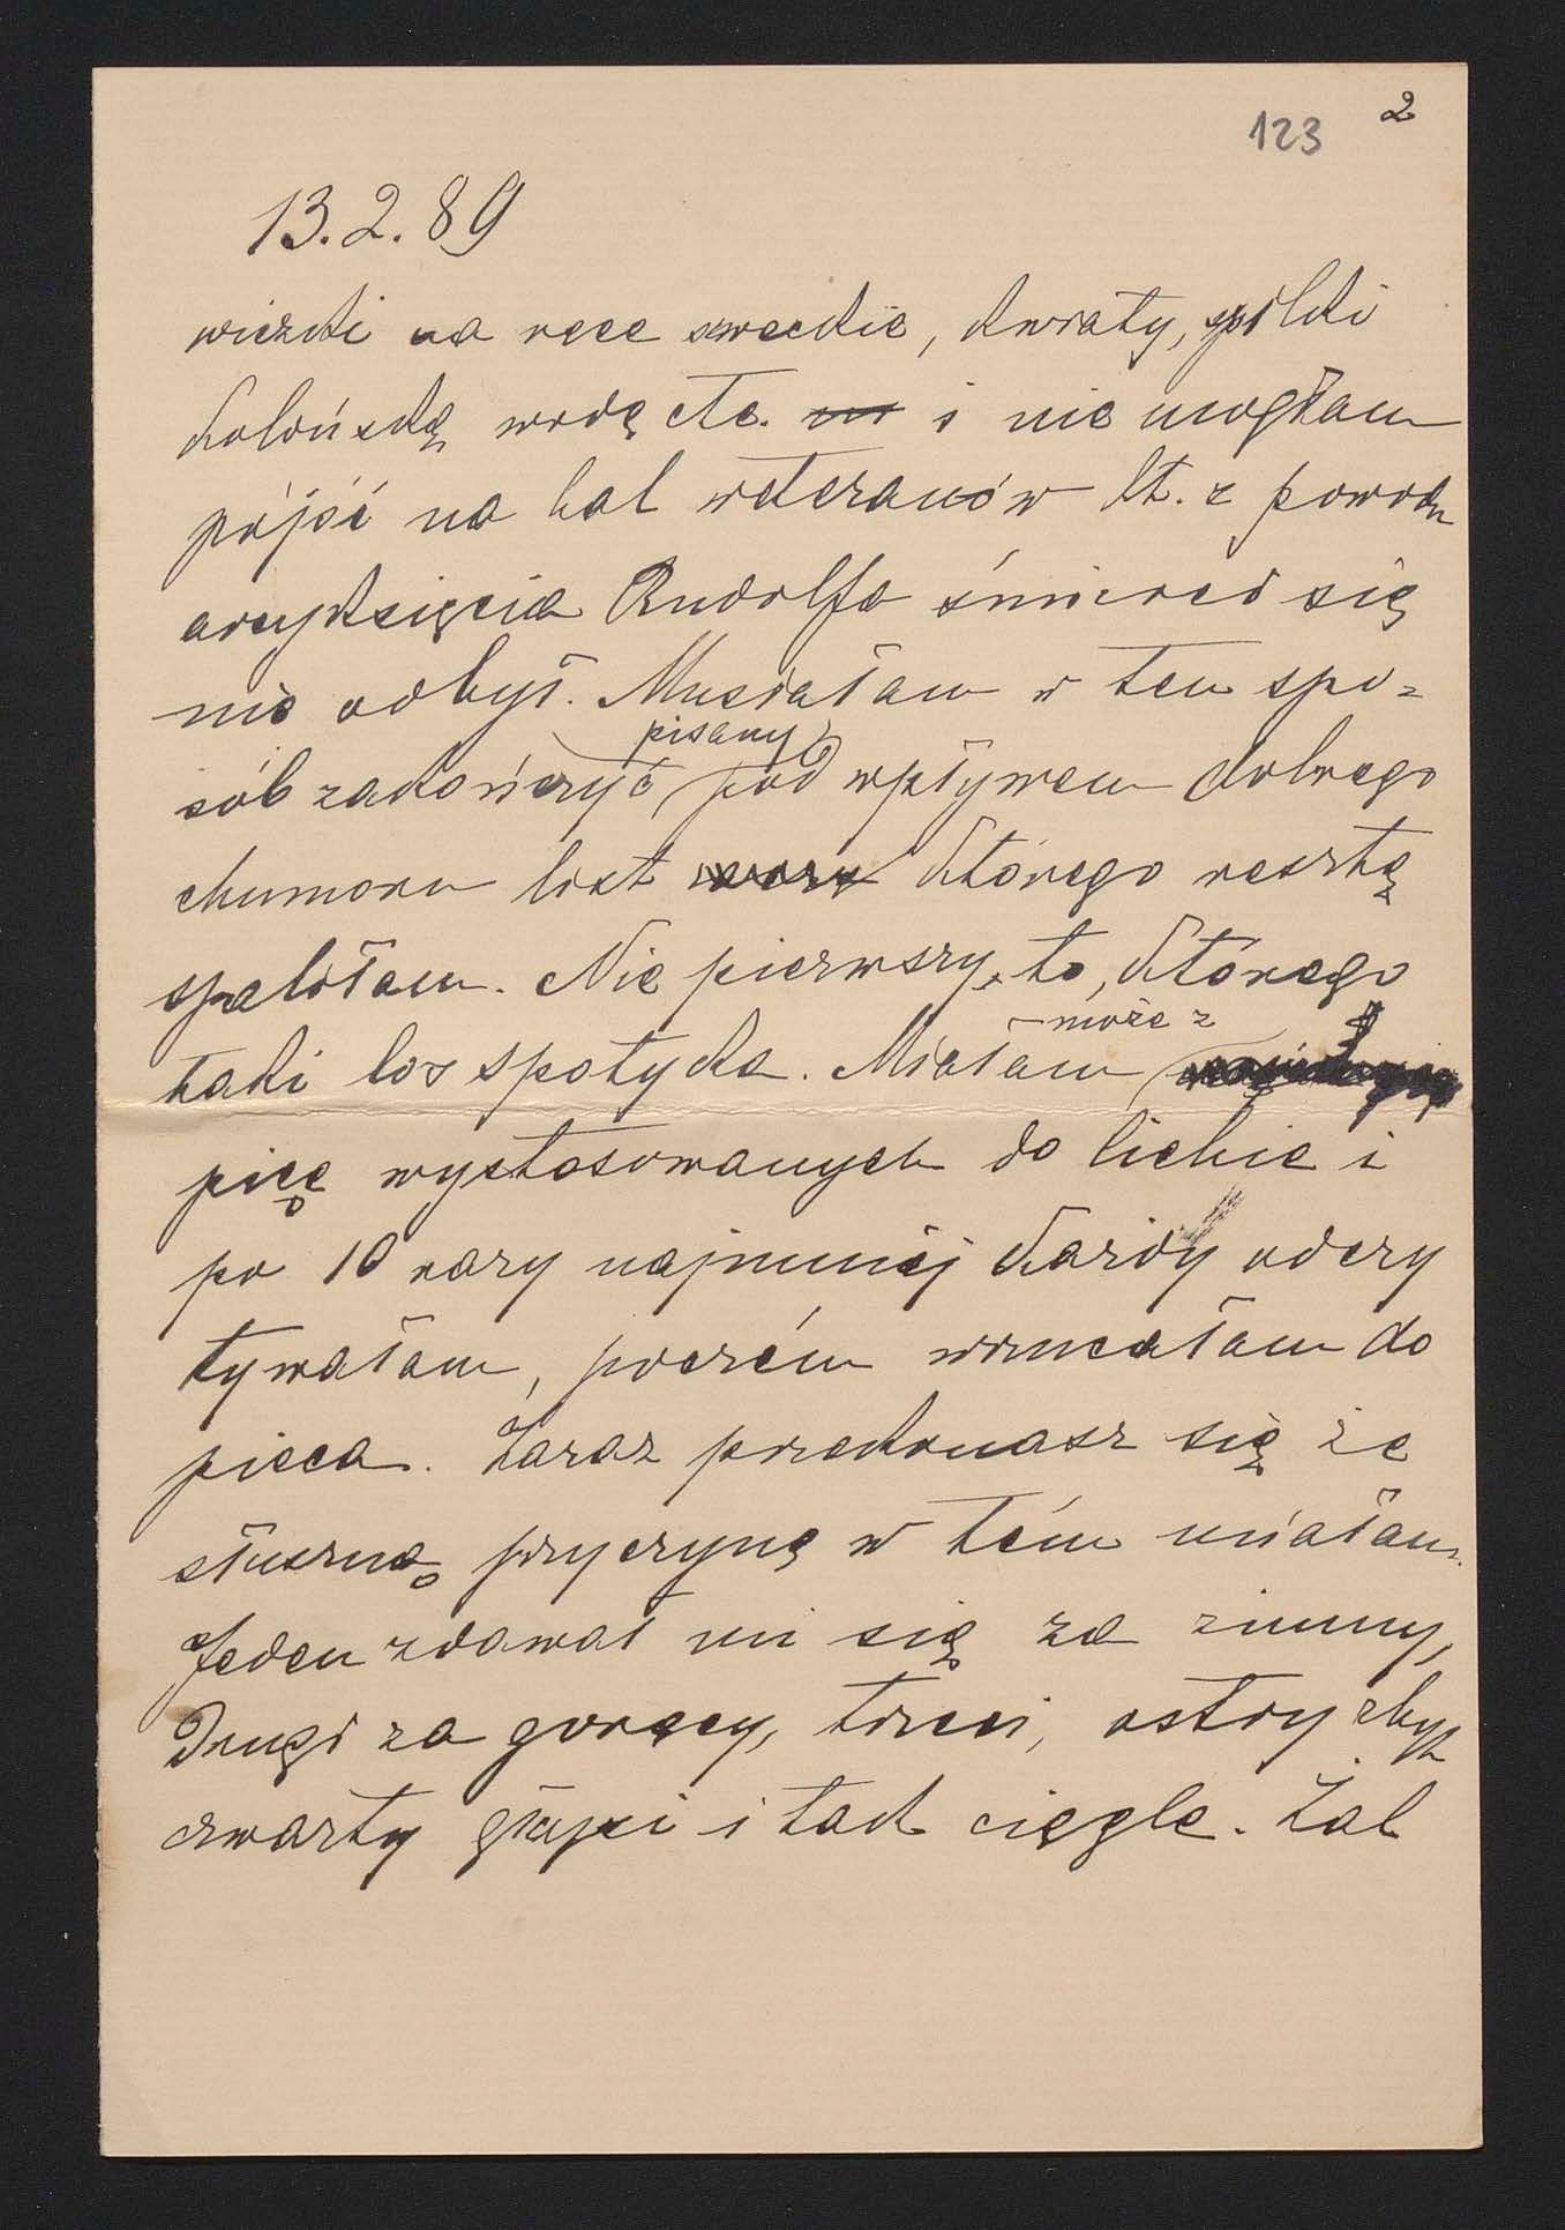 123 2
13.2.89
wiczki na ręce szwedzkie, kwiaty, szpilki
kolońską wodę etc. i nie mogłam
pójść na bal weteranów bt. z powodu
arcyksięcia Rudolfa śmierci się
nie odbył. Musiałam w ten spo=
pisany
sób zakończyć pod wpływem dobrego
chumoru list którego resztę
spaliłam. Nie pierwszy to, którego
może z
taki los spotyka. Miałam
pięc wystosowanych do Ciebie i
po 10 razy najmniéj każdy odczy
tywałam, poczém wrzucałam do
pieca. Zaraz przekonasz się że
słuszną przyczynę w tém miałam.
Jeden zdawał mi się za zimny,
Drugi za gorący, trzeci, ostry zbyt
czwarty głupi i tak ciągle. Żal